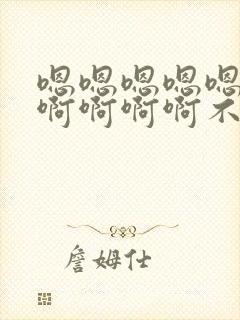 嗯嗯嗯嗯嗯
啊啊啊啊不
詹姆仕